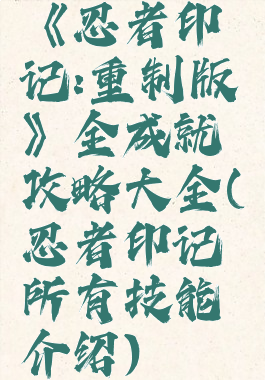 《忍者印
记:重制版
》全成就
攻略大全(
忍者印记
所有技能
介绍)